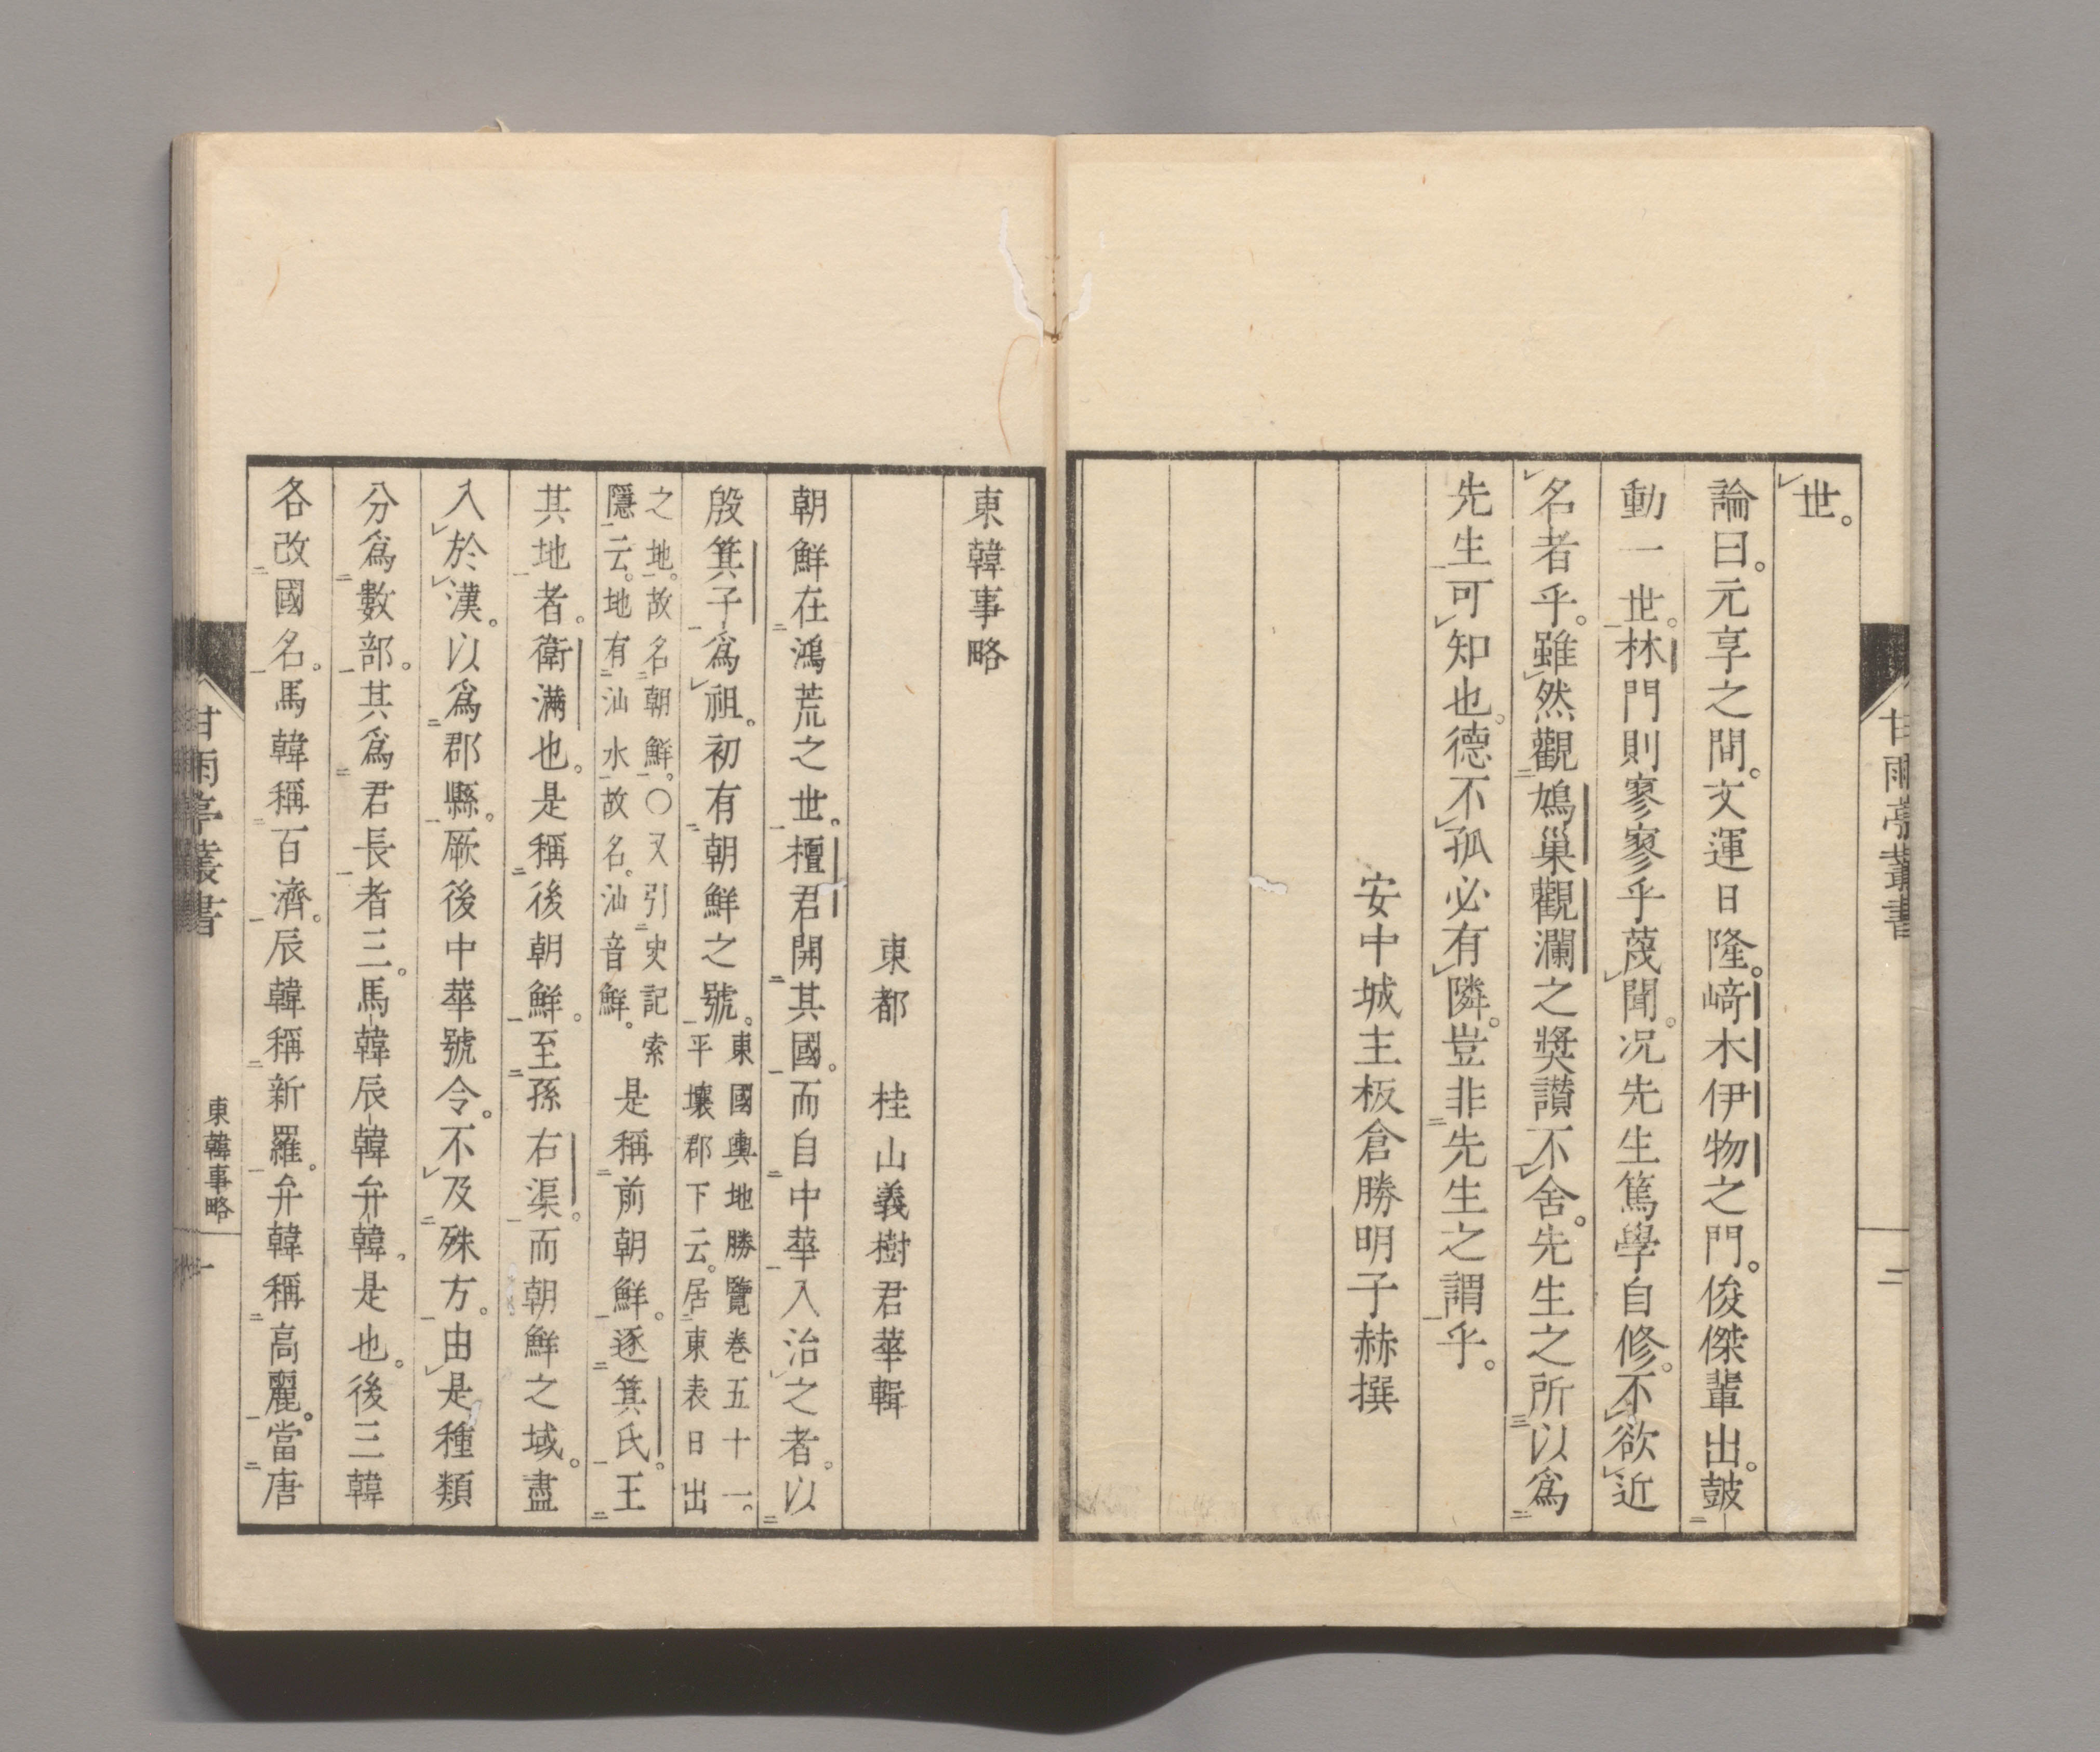 世。
論曰。元享之間。文運日隆。﨑木伊物之門。俊傑輩出。鼓
動一世。林門則寥寥乎蔑聞。况先生篤學自修。不欲近
名者乎。雖然觀鳩巢觀瀾之奬讃不舍。先生之所以爲
先生可知也。德不孤必有隣。豈非先生之謂乎。
安中城主板倉勝明子赫撰
甘雨亭叢書
二
東韓事略
東都 桂山義樹君華輯
朝鮮在鴻荒之世。檀君開其國。而自中華入治之者。以
殷箕子爲祖。初有朝鮮之號。東國輿地勝覽卷五十一。
平壤郡下云。居東表日出
之地。故名朝鮮。〇又引史記索
隱云。地有汕水故名。汕音鮮。
是稱前朝鮮。逐箕氏。王
其地者。衛滿也。是稱後朝鮮。至孫右渠。而朝鮮之域。盡
入於漢。以爲郡縣。厥後中華號令。不及殊方。由是種類
分爲數部。其爲君長者三。馬韓辰韓弁韓。是也。後三韓
各改國名。馬韓稱百濟。辰韓稱新羅。弁韓稱高麗。當唐
甘雨亭叢書
東韓事略
一